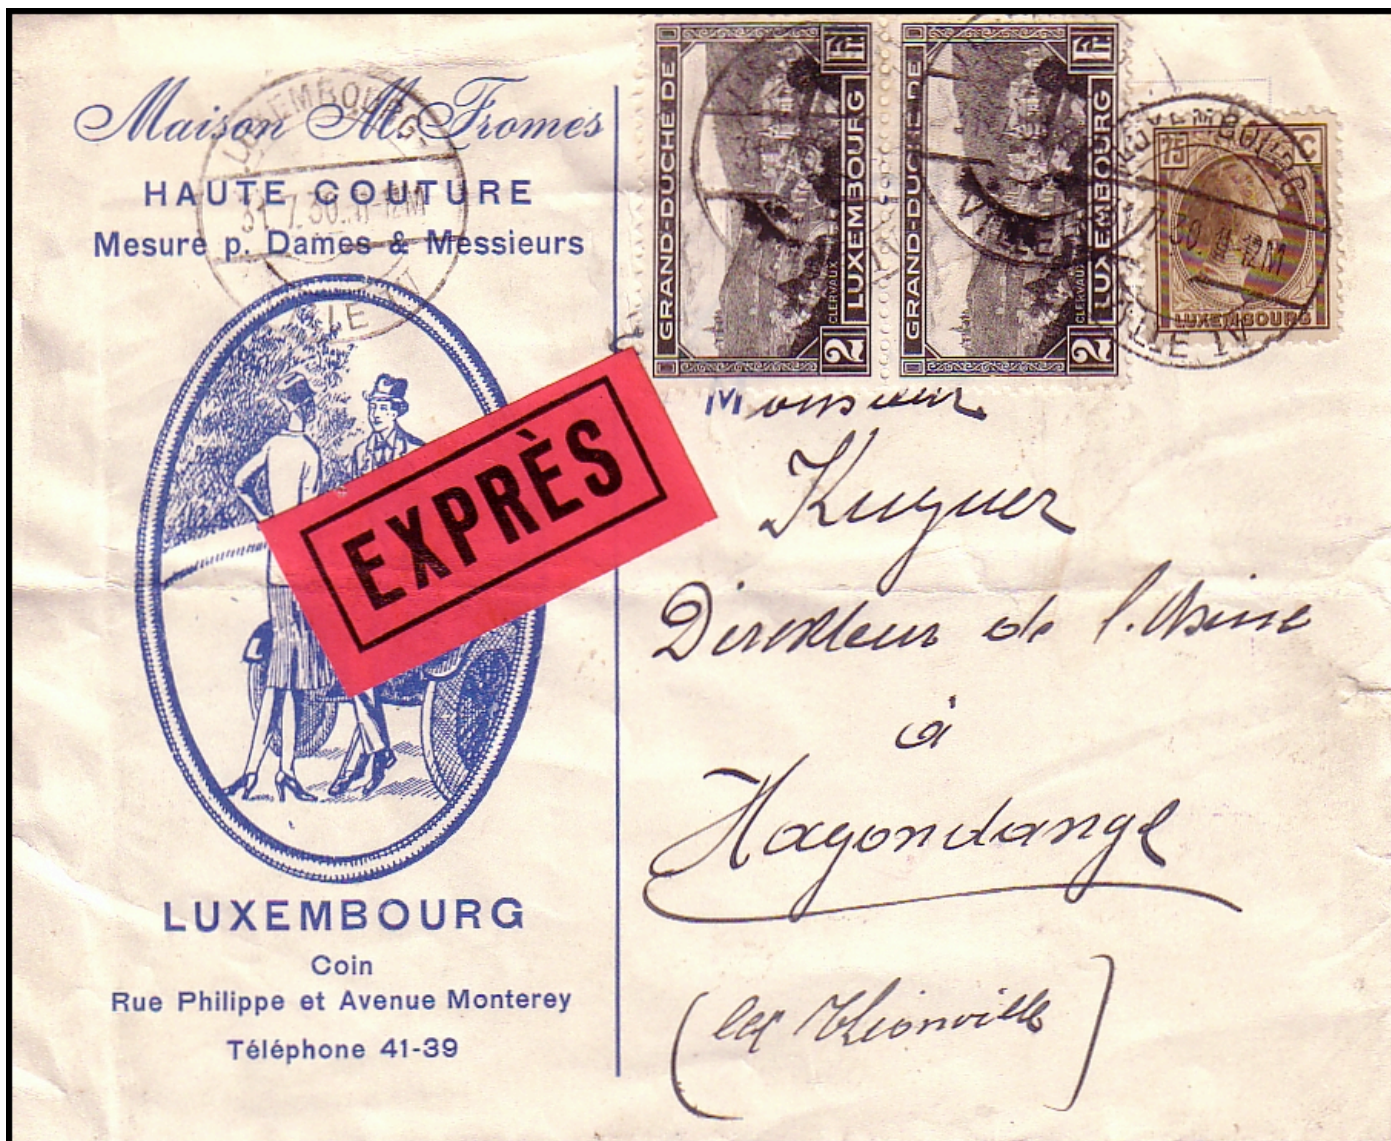 Maison M. Fromes
HAUTE COUTURE
Mesure p. Dames & Messieurs
LUXEMBOURG
31.7.30.11-12M
VILLE
EXPRÈS
LUXEMBOURG
Coin
Rue Philippe et Avenue Monterey
Téléphone 41-39
GRAND-DUCHÉ DE
LUXEMBOURG
CLERVAUX
2 Fr.
GRAND-DUCHÉ DE
LUXEMBOURG
CLERVAUX
2 Fr.
75 C
LUXEMBOURG
LUXEMBOURG
7.30.11-12M
VILLE IV
Monsieur
Kuguer
Direkteur de l'Usine
à
Hagondange
(lez Thionville)